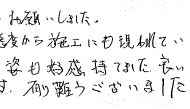 お願いしました。
度から施工にも現れてい
姿も好感持てました 良い
す。有り難うございました